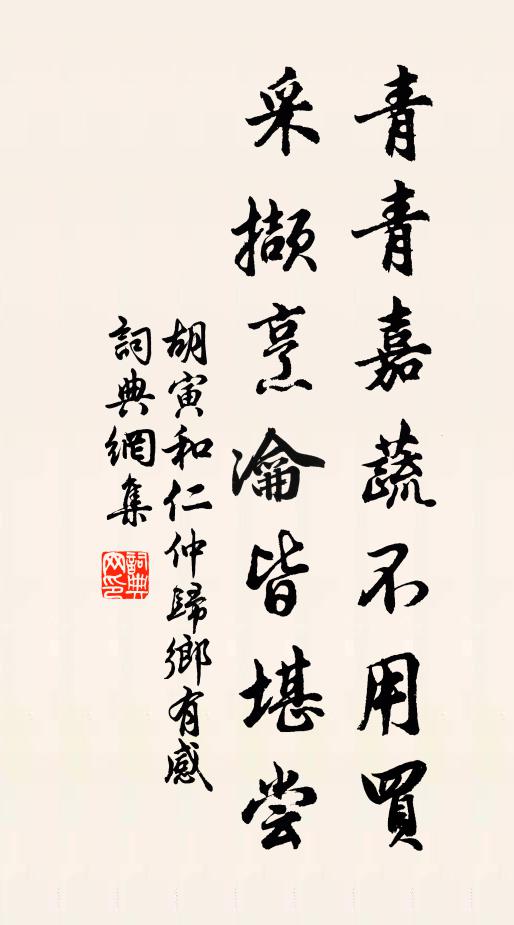 青青嘉蔬不用買
采擷烹瀹皆堪尝
胡寅和仁仲歸鄉有感
詞典網集
詞典网印